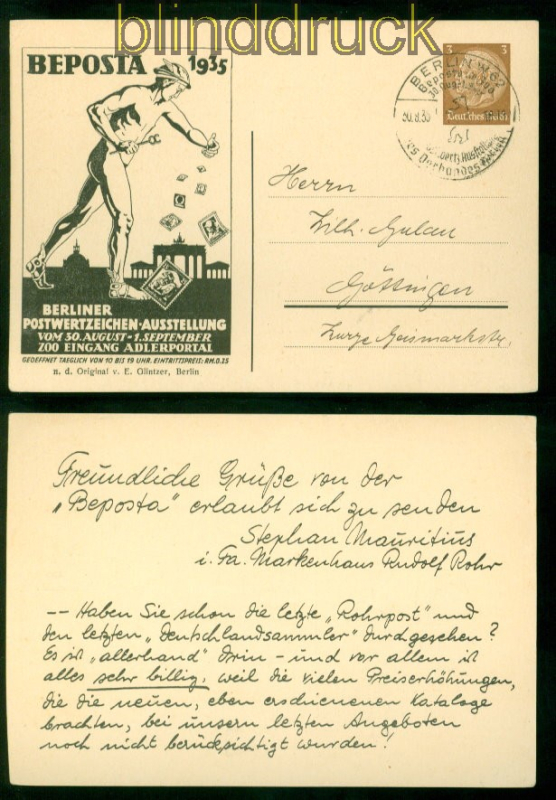 blinddruck
BEPOSTA 1935
BERLINER
POSTWERTZEICHEN-AUSSTELLUNG
VOM 30. AUGUST - 1. SEPTEMBER
ZOO EINGANG ADLERPORTAL
GEOEFFNET TAEGLICH VON 10 BIS 19 UHR. EINTRITTSPREIS: RM.0.25
n. d. Original v. E. Glintzer, Berlin
3 3
Deutsches Reich
BERLIN W62
30.8.35
des Verbandes
Herrn
Wilh. Gulau
Göttingen
Kurze Geismarkstr.
Freundliche Grüße von der
„Beposta" erlaubt sich zu senden
Stephan Mauritius
i. Fa. Markenhaus Rudolf Rohr
-- Haben Sie schon die letzte „Rohrpost" und
den letzten „Deutschlandsammler" durchgesehen?
Es ist „allerhand" drin - und vor allem ist
alles sehr billig, weil die vielen Preiserhöhungen,
die die neuen, eben erschienenen Kataloge
brachten, bei unsern letzten Angeboten
noch nicht berücksichtigt wurden!